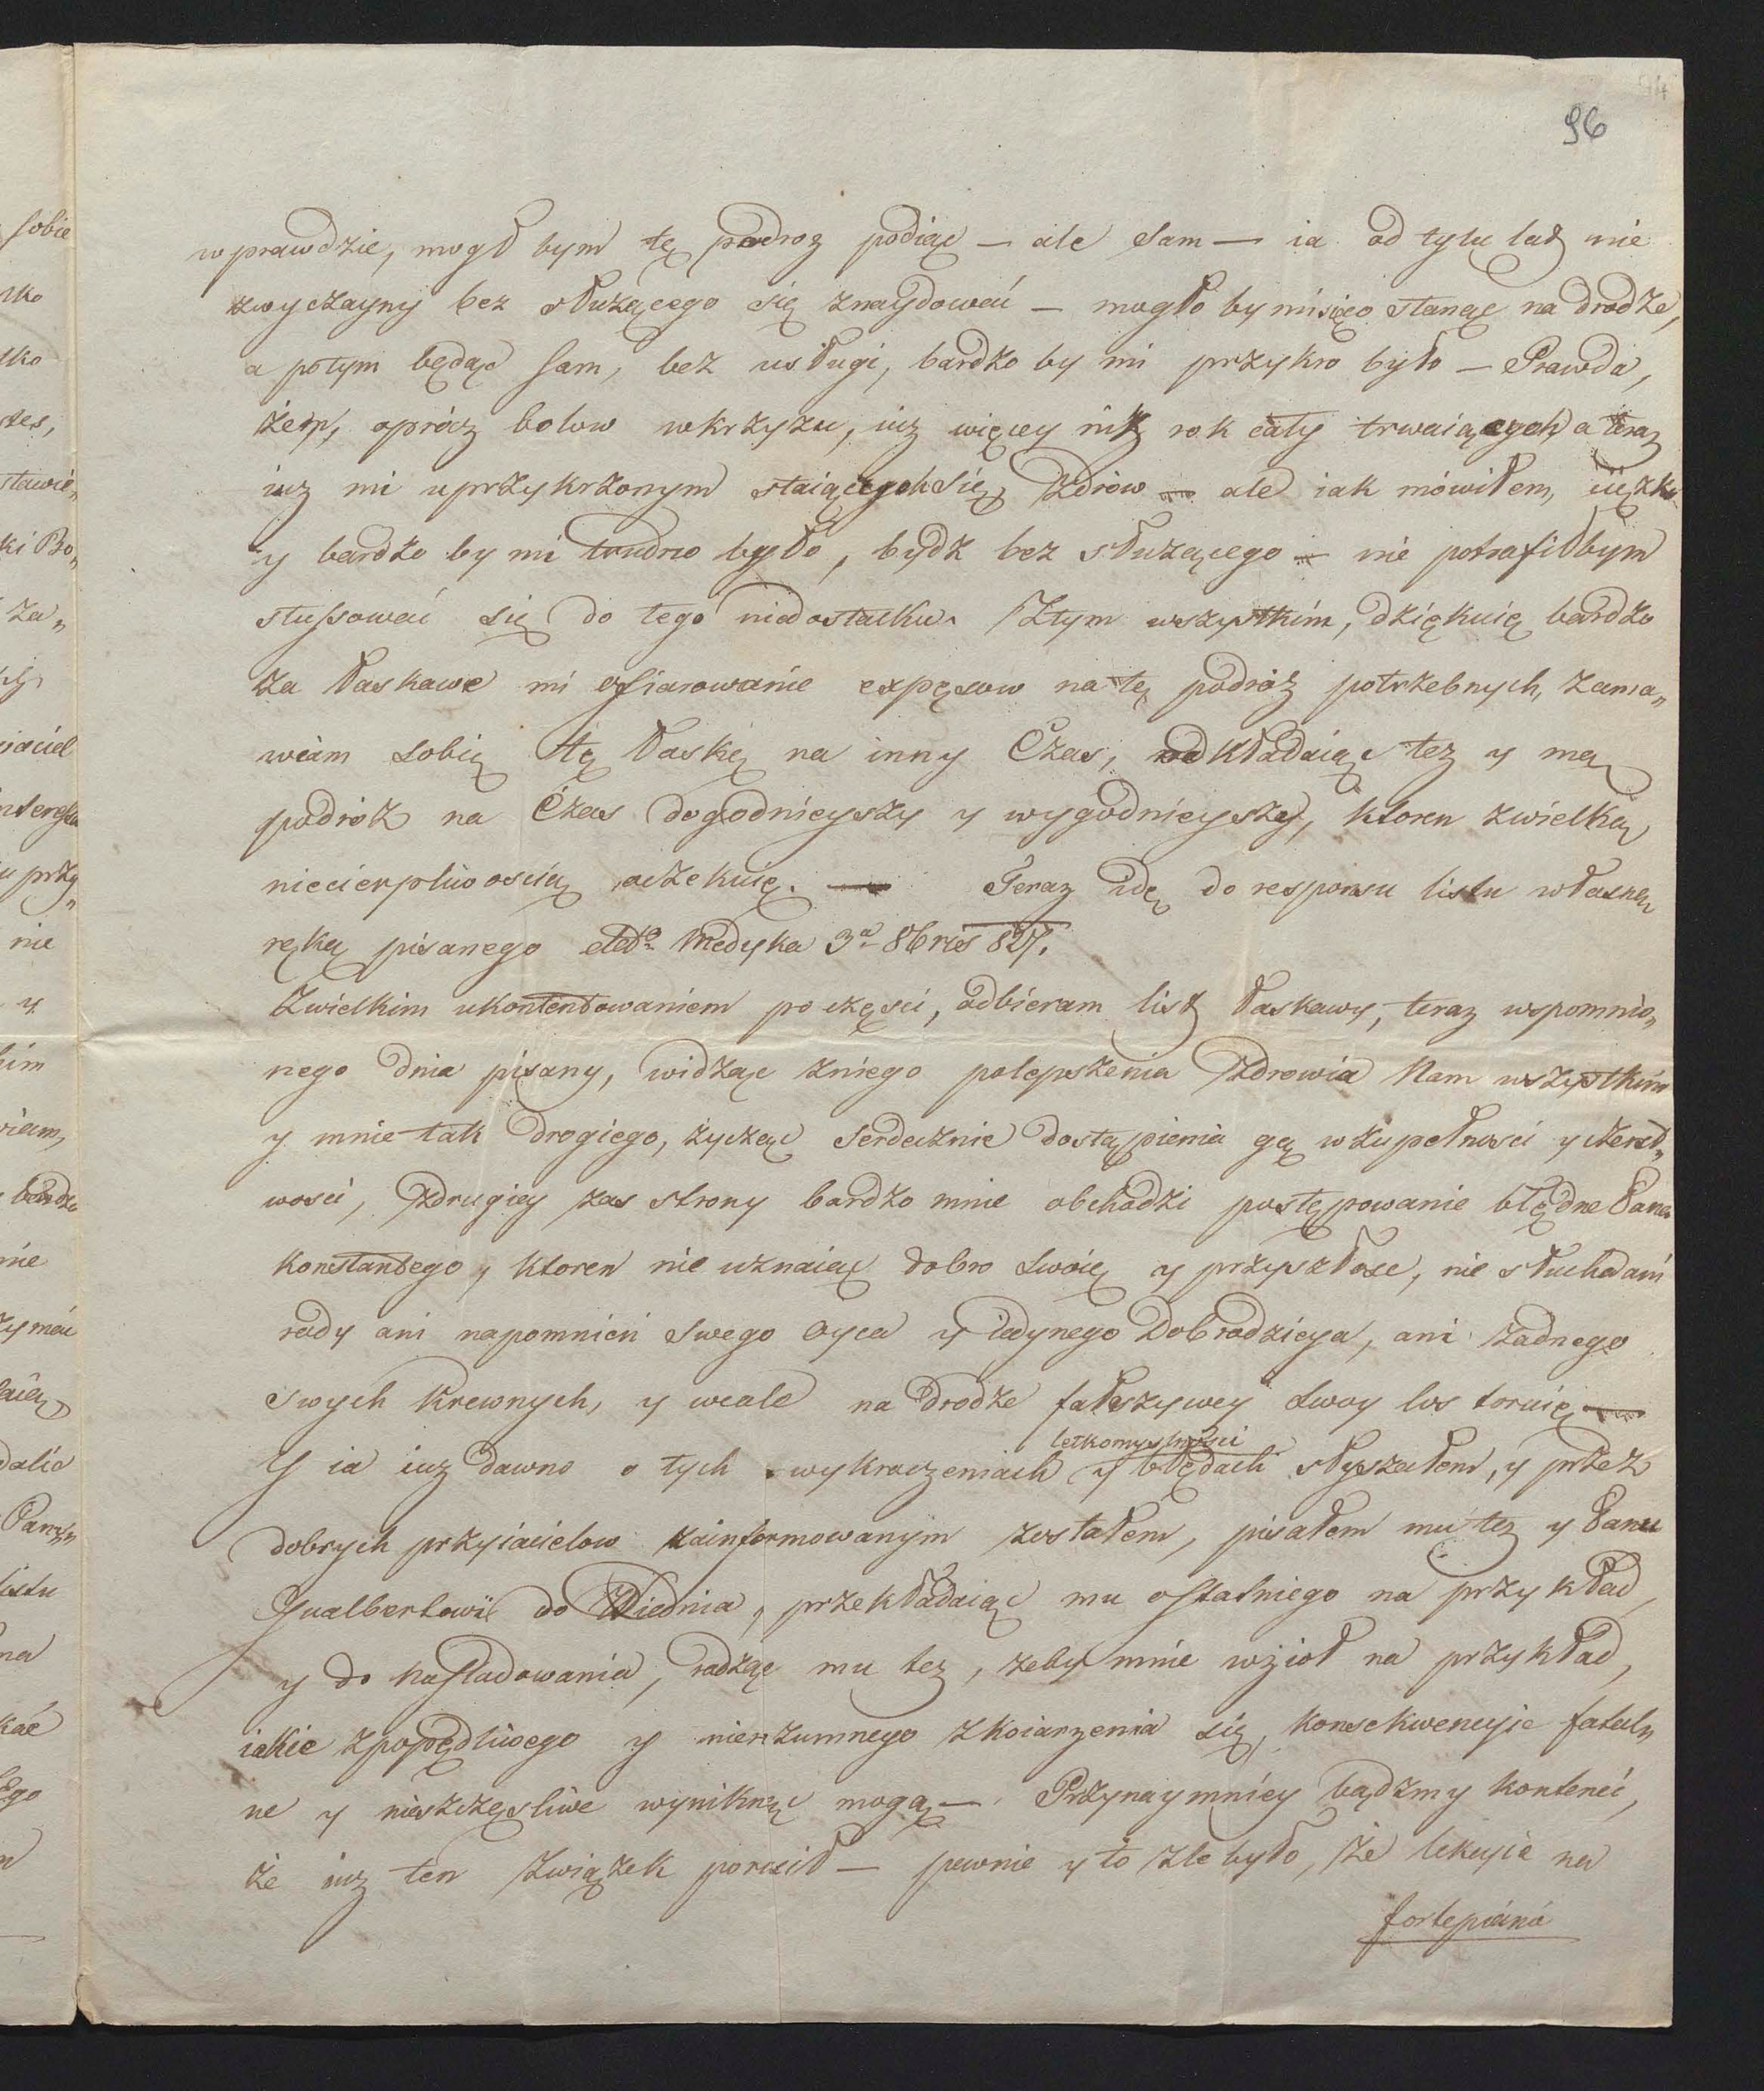 96
w prawdzie, mogł bym tę podroz podiąć — ale sam — ia od tylu lat nie
zwyczayny bez służącego się znaydować — mogło by mi się co stanąć na drodze,
a potym będąc sam, bez usługi, bardzo by mi przykro było — Prawda,
żem, oprócz bolow w krzyzu, iuz więcey niż rok cały trwaiących a teraz
iuz mi uprzykrzonym staiących się, zdrow — ale iak mówiłem, cięzko
y bardzo by mi trudno było, bydz bez służącego — nie potrafiłbym
stussować się do tego niedostatku. Ztym wszystkim, dziękuię bardzo
za łaskawe mi ofiarowanie expęsow na tę podróz potrzebnych, zama„
wiam sobię tę łaskę na inny Czas, odkładaiąc tez y mą
podróż na Czas dogodnieyszy y wygodnieyszy, ktoren zwielką
niecierpliwoscią oczekuię. — Teraz idę do responsu listu własną
ręką pisanego ddto Medyka 3a 8bris 827.
Zwielkim ukontentowaniem po częsci, odbieram list łaskawy, teraz wspomnio„
nego dnia pisany, widząc zniego polepszenia zdrowia Nam wszystkim
y mnie tak drogiego, zycząc serdecznie dostąpienia gą w zupełnosci y czerst„
wosci, zdrugiey zas strony bardzo mnie obchodzi postępowanie błędne Pana
Konstantego, ktoren nie uznaiąc dobro swoię y przyszłosc, nie słucha ani
rady ani napomnień swego oyca y iedynego Dobrodzieya, ani żadnego
swych krewnych, y wcale na drodze fałszywey swoy los toruię —
Y ia iuz dawno o tych wykroczeniach y błędach letkomyslnosci słyszałem, y przez
dobrych przyiacielow zainformowanym zostałem, pisałem mu tez y Panu
Gualbertowi do Wiednia, przekładaiąc mu ostatniego na przykład,
y do nasladowania, radząc mu tez, zeby mnie wzioł na przykład,
iakie zpopędliwego y nierzumnego zkoiarzenia się, konsekwencyie fatal„
ne y nieszczęsliwe wyniknąć mogą — Przynaymniey bądzmy kontenci,
że iuz ten związek porucił — pewnie y to zle było, że lekcyie na
fortepiana